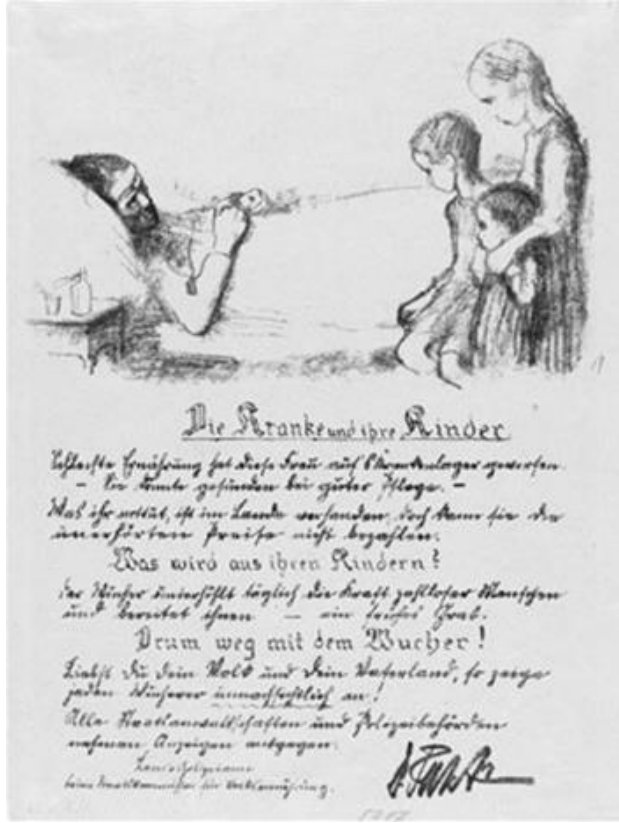 Die Kranke und ihre Kinder
Schlechte Ernährung hat diese Frau auf's Krankenlager geworfen.
– Sie könnte gesunden bei guter Pflege. –
Was ihr nottut, ist im Lande vorhanden, doch kann sie die
unerhörten Preise nicht bezahlen.
Was wird aus ihren Kindern?
Der Wucher unterhöhlt täglich die Kraft zahlloser Menschen
und bereitet ihnen – ein frühes Grab.
Drum weg mit dem Wucher!
Liebst Du Dein Volk und Dein Vaterland, so zeige
jeden Wucherer unnachsichtlich an!
Alle Staatsanwaltschaften und Polizeibehörden
nehmen Anzeigen entgegen.
Landespolizeiamt
beim Staatskommissar für Volksernährung.